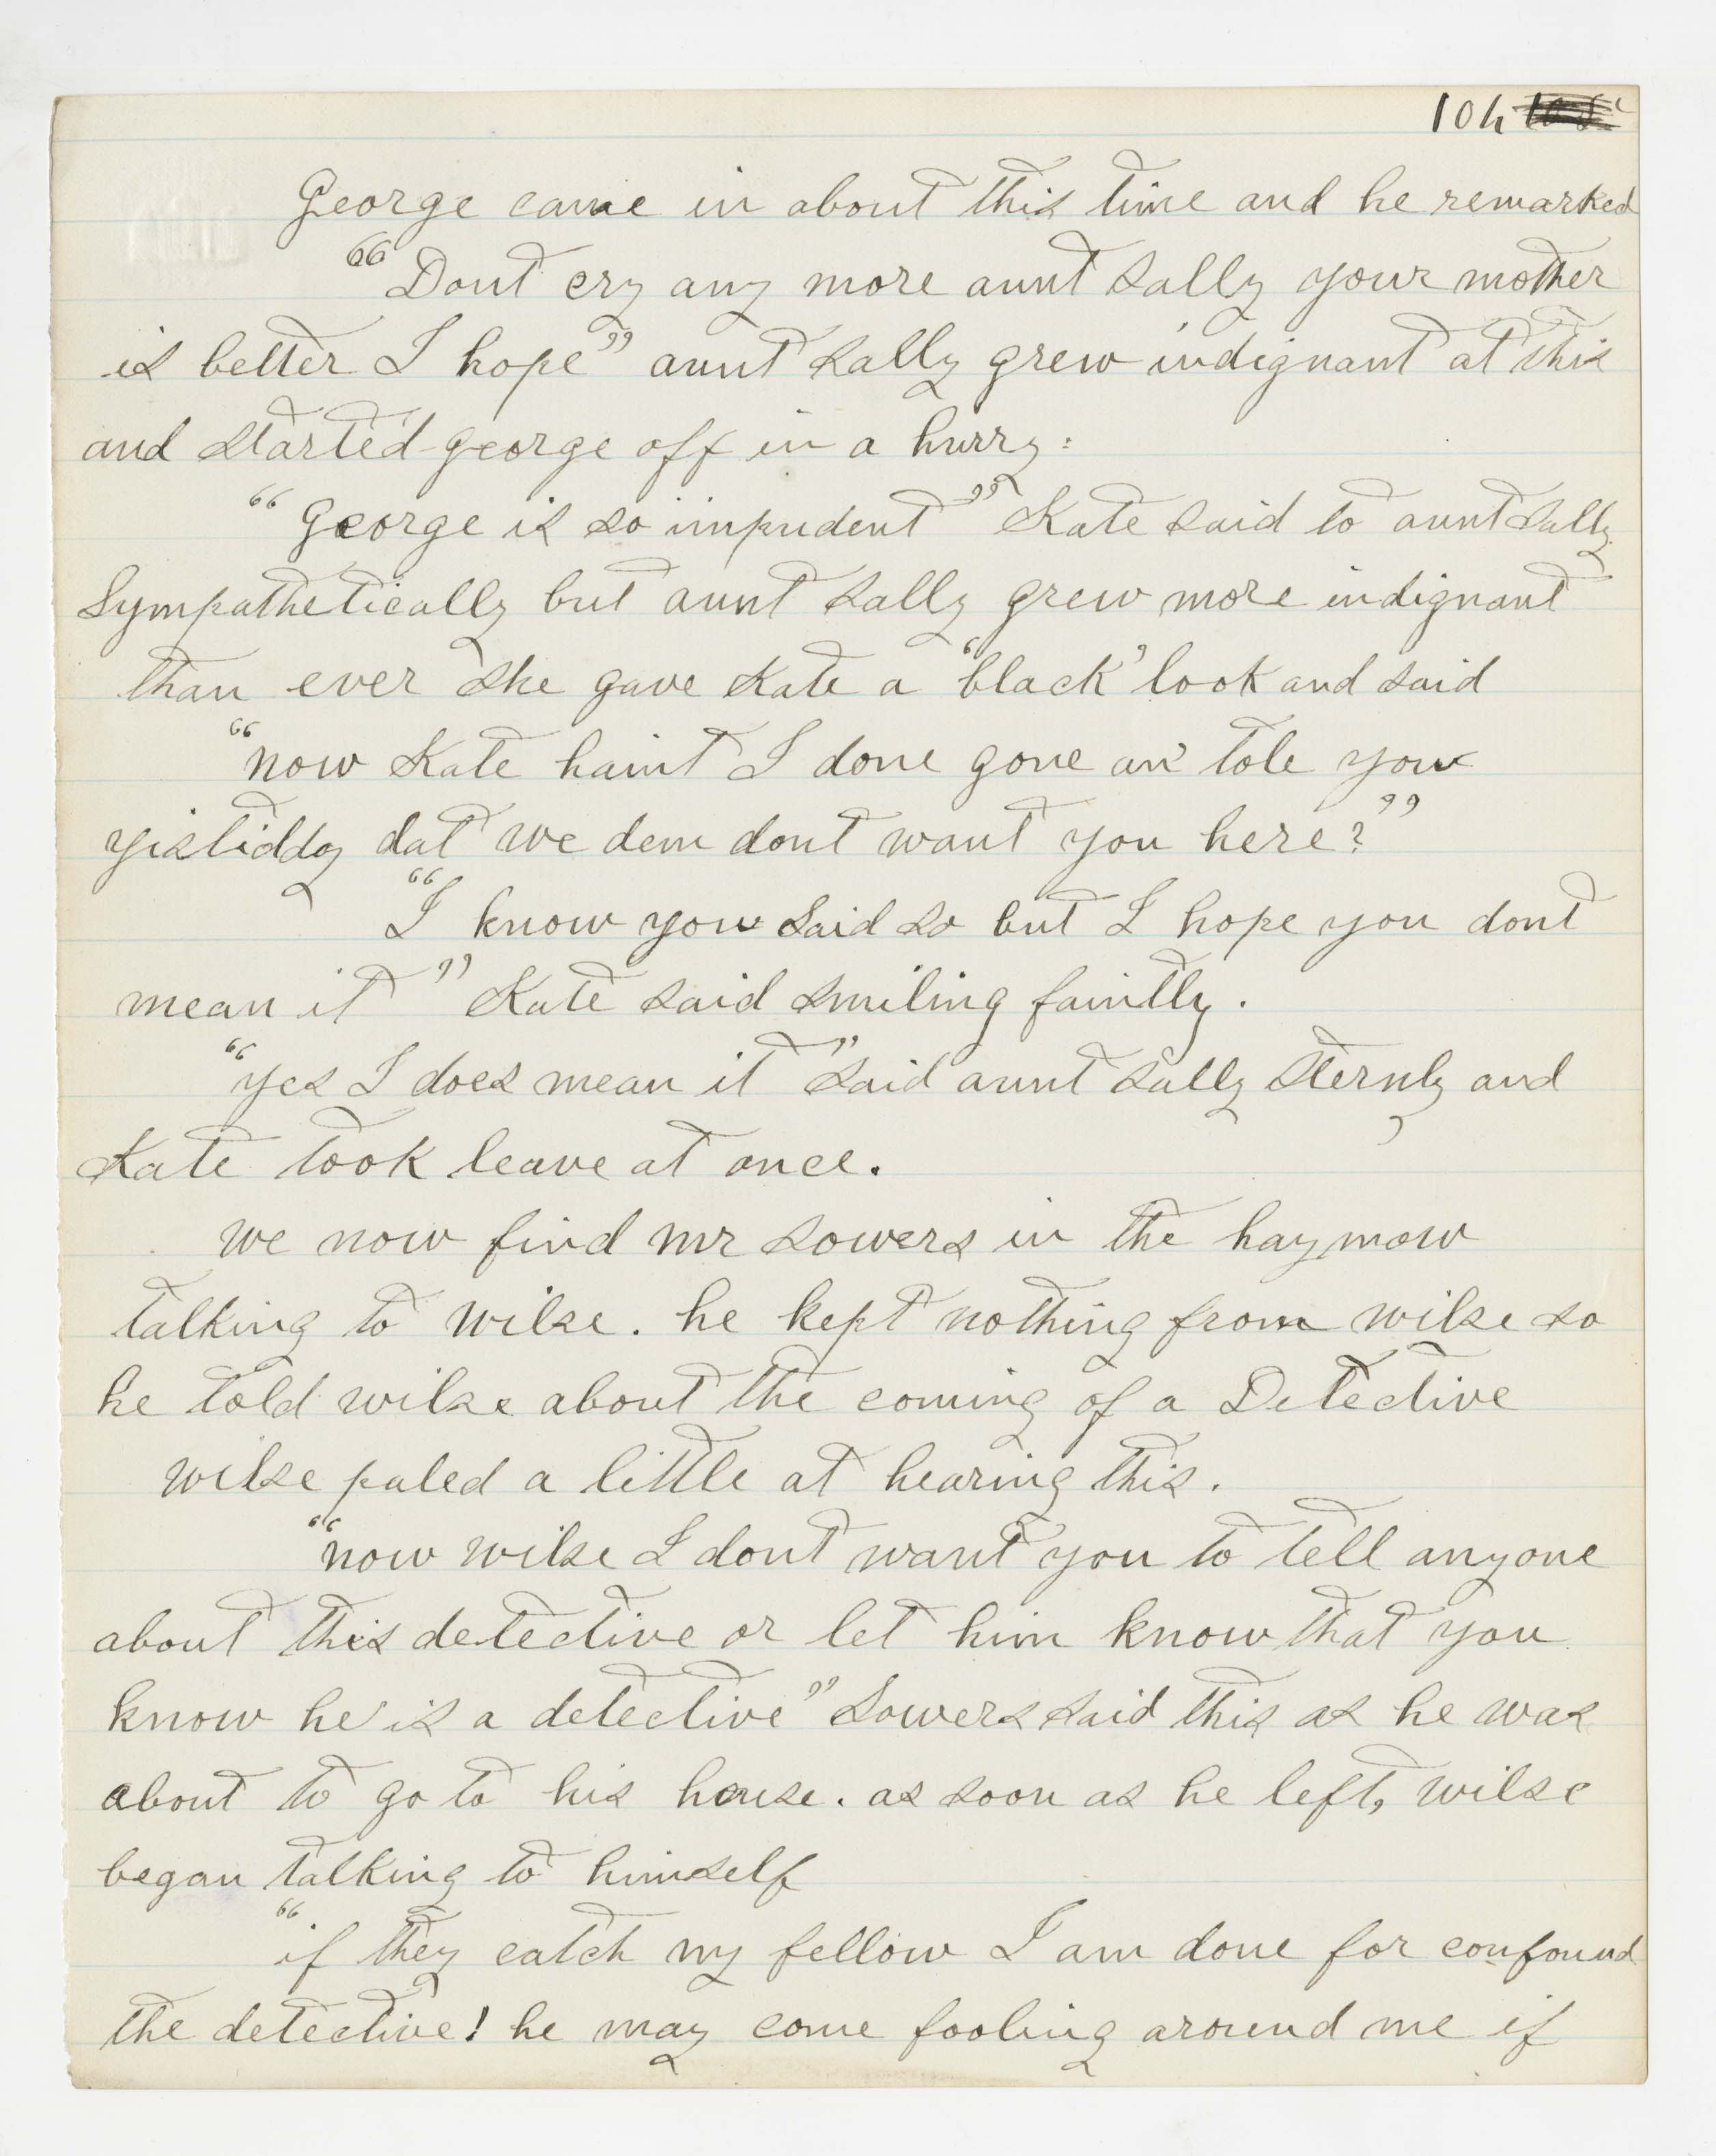 104
George came in about this time and he remarked
“Dont cry any more aunt Sally your mother
is better I hope” aunt Sally grew indignant at this
and started george off in a hurry:
“George is so impudent” Kate said to aunt Sally
Sympathetically but aunt Sally grew more indignant
than ever she gave Kate a ‘black’ look and said
“now Kate haint I done gone an’ tole you
yistiddy dat we dem dont want you here?”
“I know you said so but I hope you dont
mean it” Kate said smiling faintly.
“yes I does mean it” said aunt Sally sternly and
Kate took leave at once.
we now find mr Sowers in the haymow
talking to wilse. he kept nothing from wilse so
he told wilse about the coming of a Detective
wilse paled a little at hearing this.
“now wilse I dont want you to tell anyone
about this detective or let him know that you
know he is a detective” Sowers said this as he was
about to go to his house. as soon as he left, wilse
began talking to himself
“if they catch my fellow I am done for confound
the detective! he may come fooling around me if